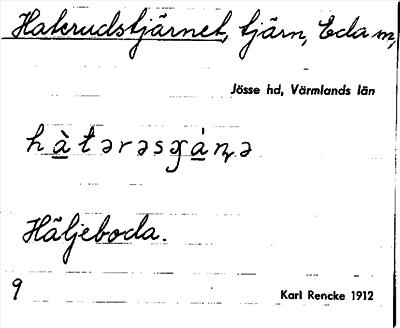 Hakerudstjärnet, tjärn, Eda sn,
Jösse hd, Värmlands län
hàtərəsɡánə
Häljeboda.
9
Karl Rencke 1912